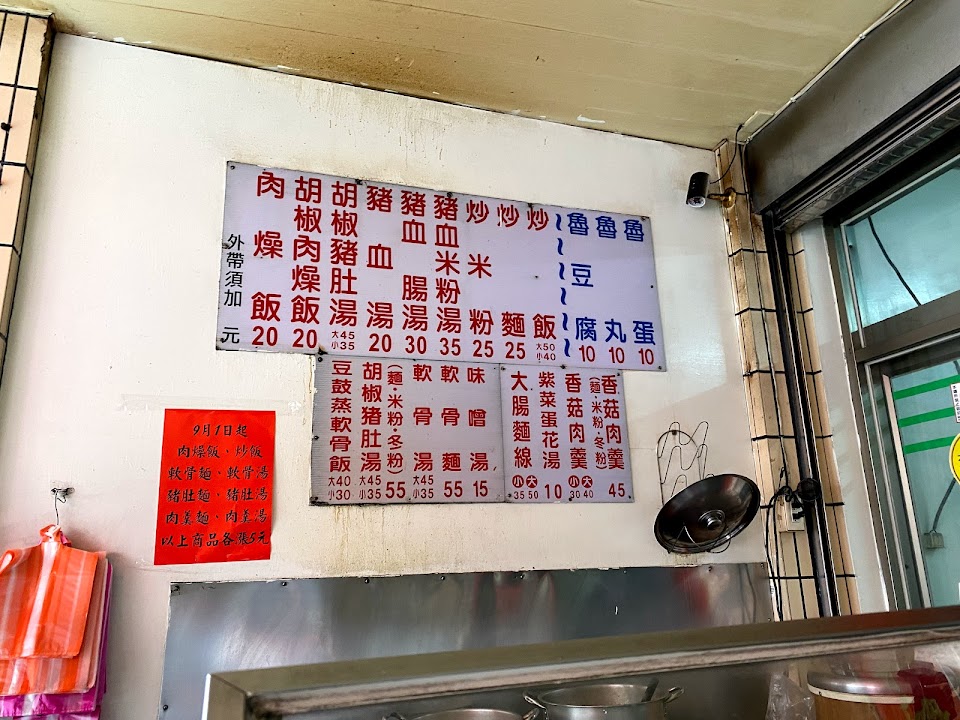 外帶須加 元
肉燥飯 20
胡椒肉燥飯 20
胡椒豬肚湯 大45 小35
豬血湯 20
豬血腸湯 30
豬血米粉湯 35
炒米粉 25
炒麵 25
炒飯 大50 小40
魯豆腐 10
魯丸 10
魯蛋 10
豆鼓蒸軟骨飯 大40 小30
胡椒豬肚湯 大45 小35
(麵·米粉·冬粉) 55
軟骨湯 大45 小35
軟骨麵 55
味噌湯 15
大腸麵線 小35 大50
紫菜蛋花湯 10
香菇肉羹 小30 大40
(麵·米粉·冬粉)
香菇肉羹 45
9月1日起
肉燥飯、炒飯
軟骨麵、軟骨湯
豬肚麵、豬肚湯
肉羹麵、肉羹湯
以上商品各漲5元